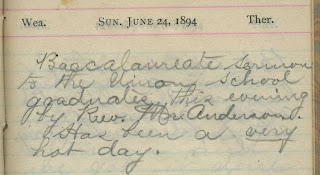 Wea. Sun. June 24, 1894 Ther.
Baccalaureate sermon
to the Union school
graduates this evening
by Rev. Mr. Anderson.
Has been a very
hot day.